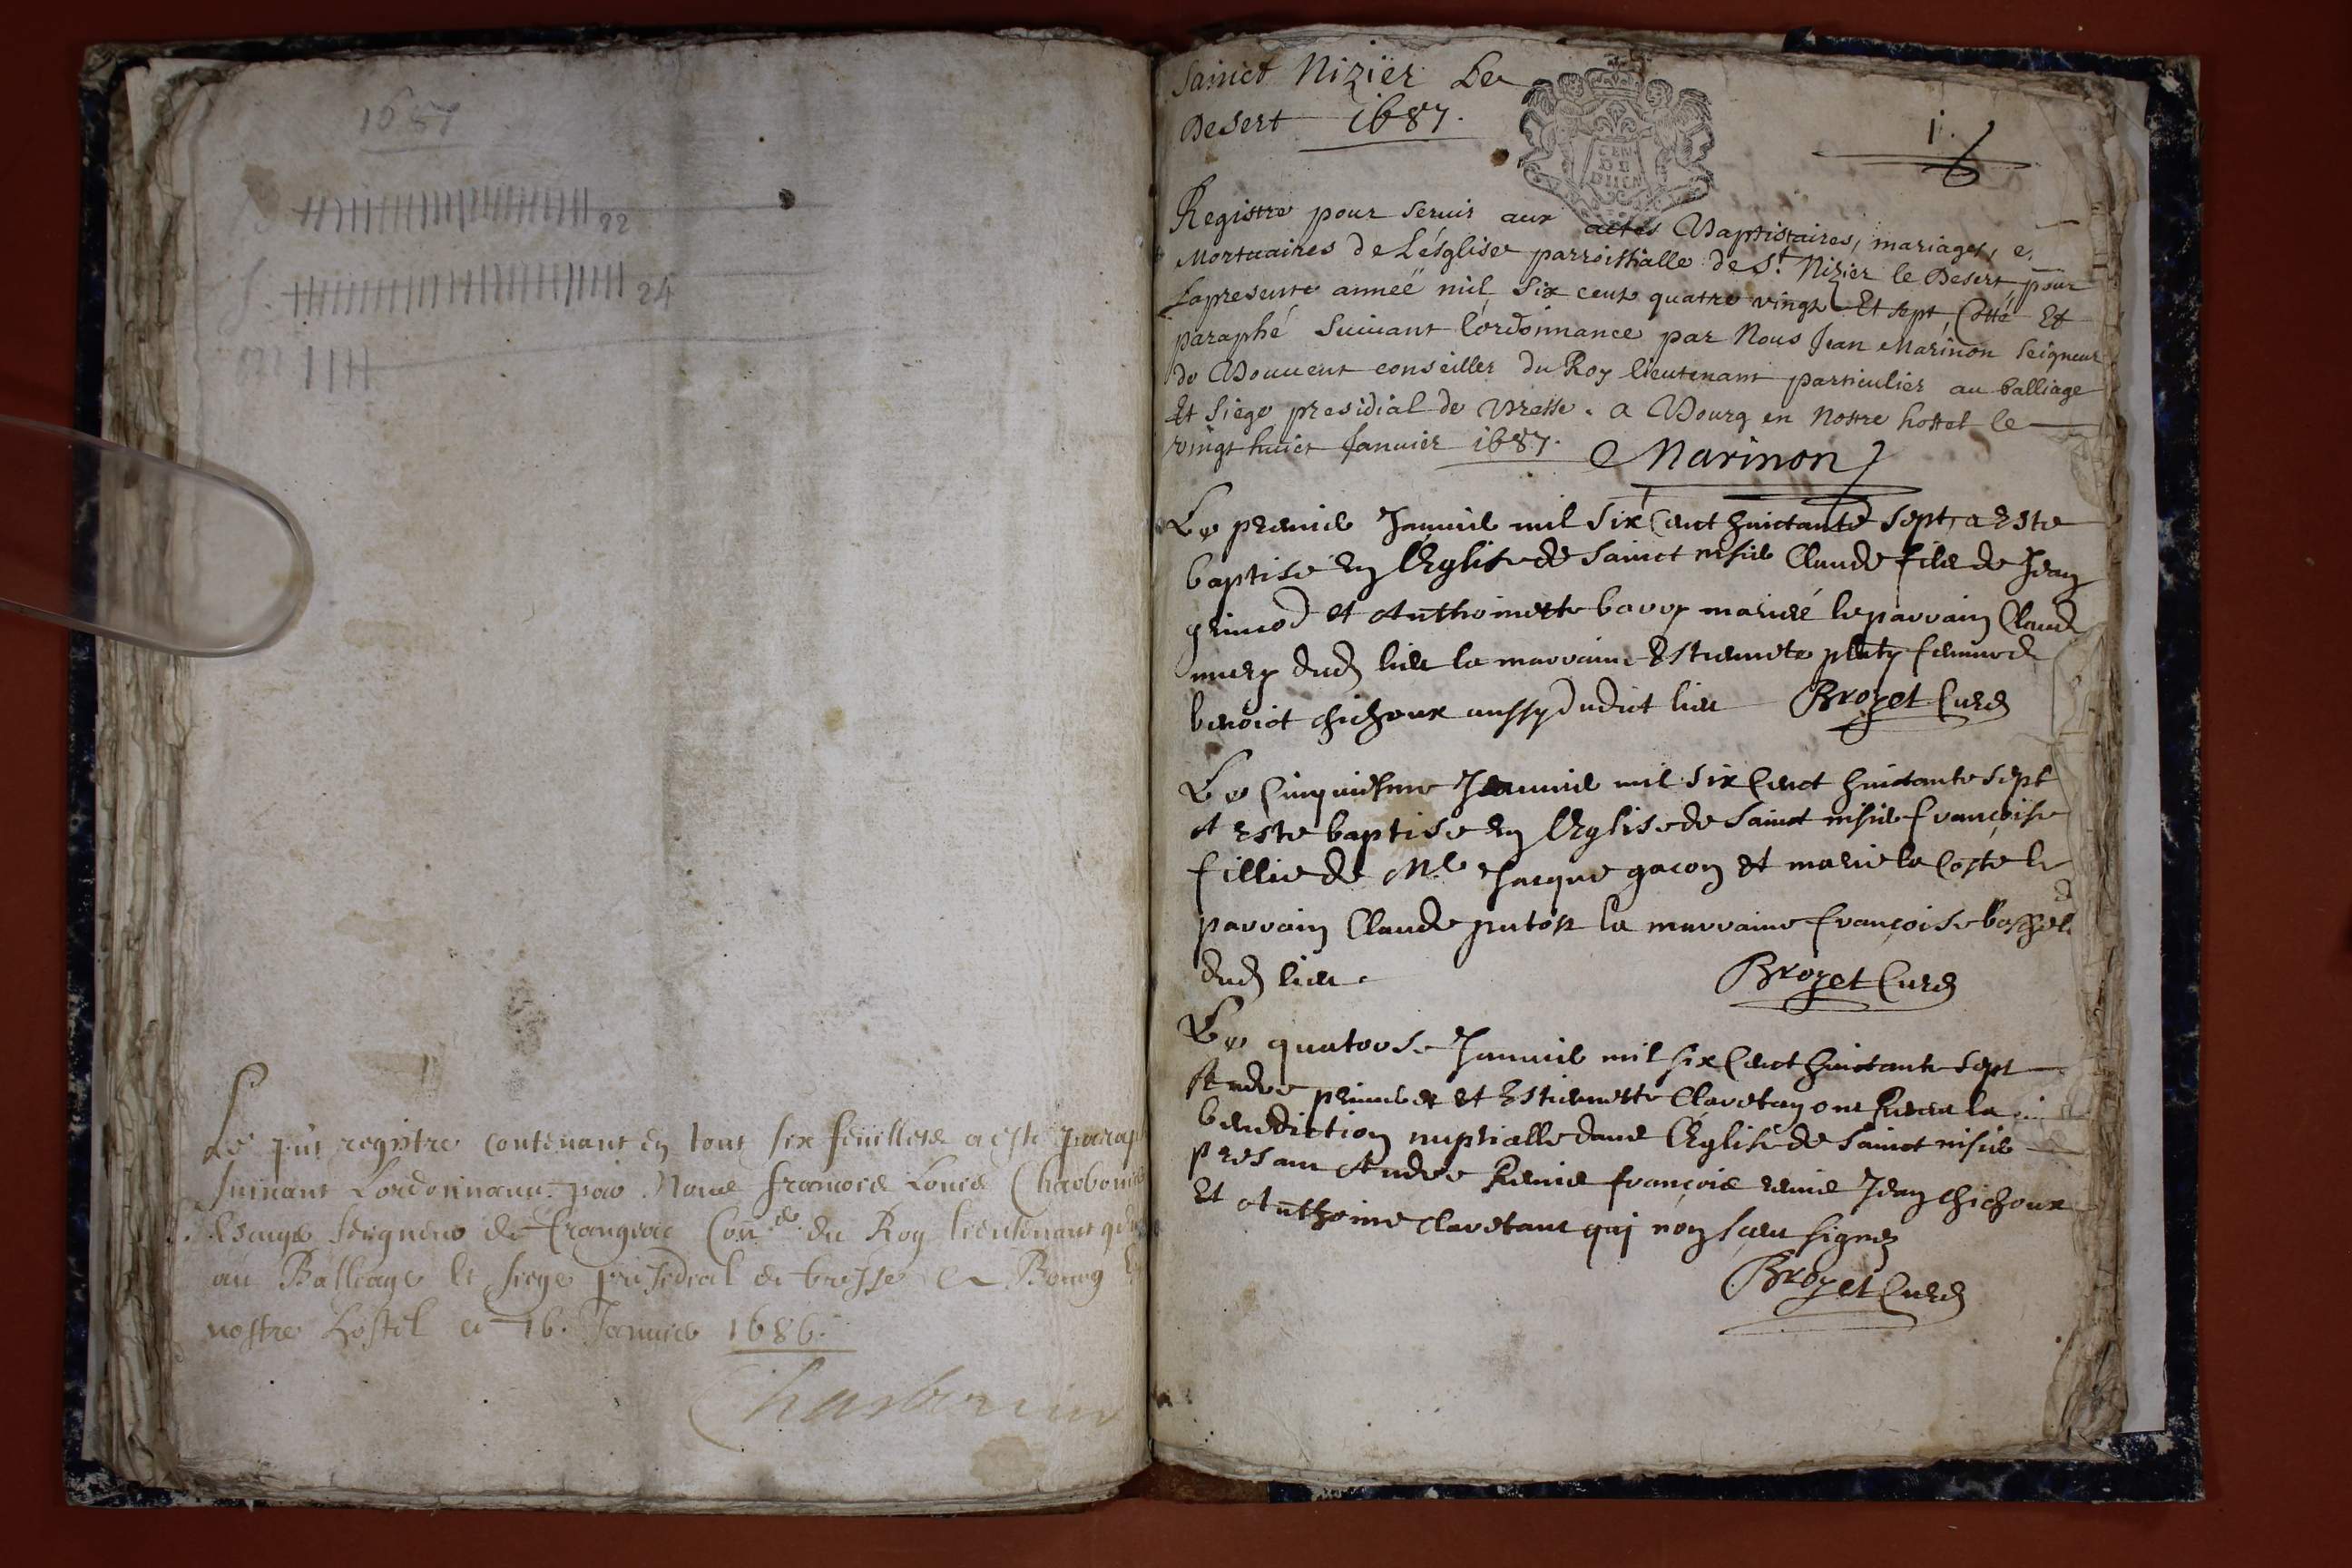 1687
22
S. 24
m
Le pnt registre contenant en tout six feuillets a esté parap
suivant L'ordonnance par Nous françois Louis Charbonnier
seigneur de Crangeac Con.er du Roy lieutenant
au Balliage et siege presidial de bresse a Bourg
nostre hostel ce 16. Januier 1686.
Charbonnier
Sainct Nizier Le
Desert 1687.
GEN
DE
DIION
1.
Registre pour seruir aux actes Baptistaires, mariages, e
Mortuaires de L'ésglise parroissialle de St. Nizier le Desert, pour
La presente annéë mil six cents quatre vingts Et sept, Cotté Et
paraphé suiuant l'ordonnance par Nous Jean Marinon seigneur
de Bouuent conseiller du Roy lieutenant particulier au balliage
Et siege presidial de Bresse. a Bourg en Nostre hostel le
vingt huict Januier 1687. Marinon
Le premier Januier mil six Cent huictante sept, a este
baptisé En l'Eglise de Sainct nisier Claude fils de Jean
et Anthoinette mariés le parrain Claude
dud lieu la marraine Estiennete femme de
benoict chichoux aussy dudict lieu Brozet Curé
Le Cinquiesme Januier mil six Cent huictante sept
A este baptise En l'Eglise de Sainct nisier françoise
fillie de Me Jacque gacon et marie la Coste le
parrain Claude la marraine françoise
dud lieu Brozet Curé
Le quatorse Januier mil six Cent huictante sept
Andre et Estiennette Clavetan ont Receu la
benediction nuptialle dans l'Eglise de Sainct nisier
presant Andre françois Jean chichoux
Et Anthoine Clavetant qui non sceu signer
Brozet Curé